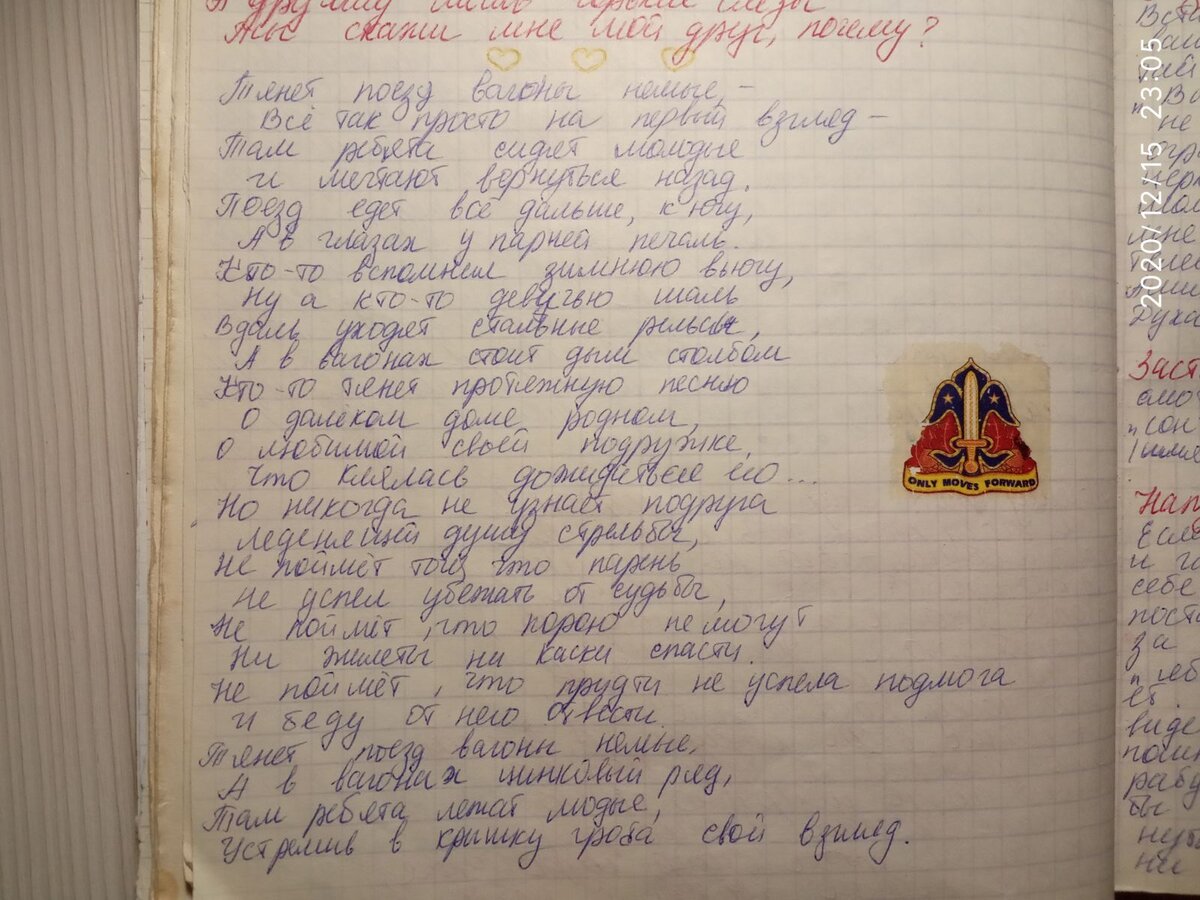 А другому лишь горькие слёзы
Ты скажи мне мой друг, почему?
Тянет поезд вагоны немые, –
Всё так просто на первый взгляд –
Там ребята сидят молодые
и мечтают вернуться назад.
Поезд едет всё дальше, к югу,
А в глазах у парней печаль.
Кто-то вспомнил зимнюю вьюгу,
Ну а кто-то девичью шаль
Вдаль уходят стальные рельсы,
А в вагонах стоит дым столбом
Кто-то тянет протяжную песню
О далёком доме родном,
О любимой своей подружке,
Что клялась дожидаться его...
Но никогда не узнает подруга
леденящий душу стрельбы,
Не поймёт того что парень
не успел убежать от судьбы,
Не поймёт, что порою не могут
Ни жилеты ни каски спасти.
Не поймёт, что прийти не успела подмога
и беду от него отвести.
Тянет поезд вагоны немые,
А в вагонах цинковый ряд,
Там ребята лежат модые,
Устремив в крышку гроба свой взгляд.
ONLY MOVES FORWARD
2020/12/15 23:05
мне
Духа
Заст
сон
Нап
Если
и
себе
пост
за
виде
рабу
ты